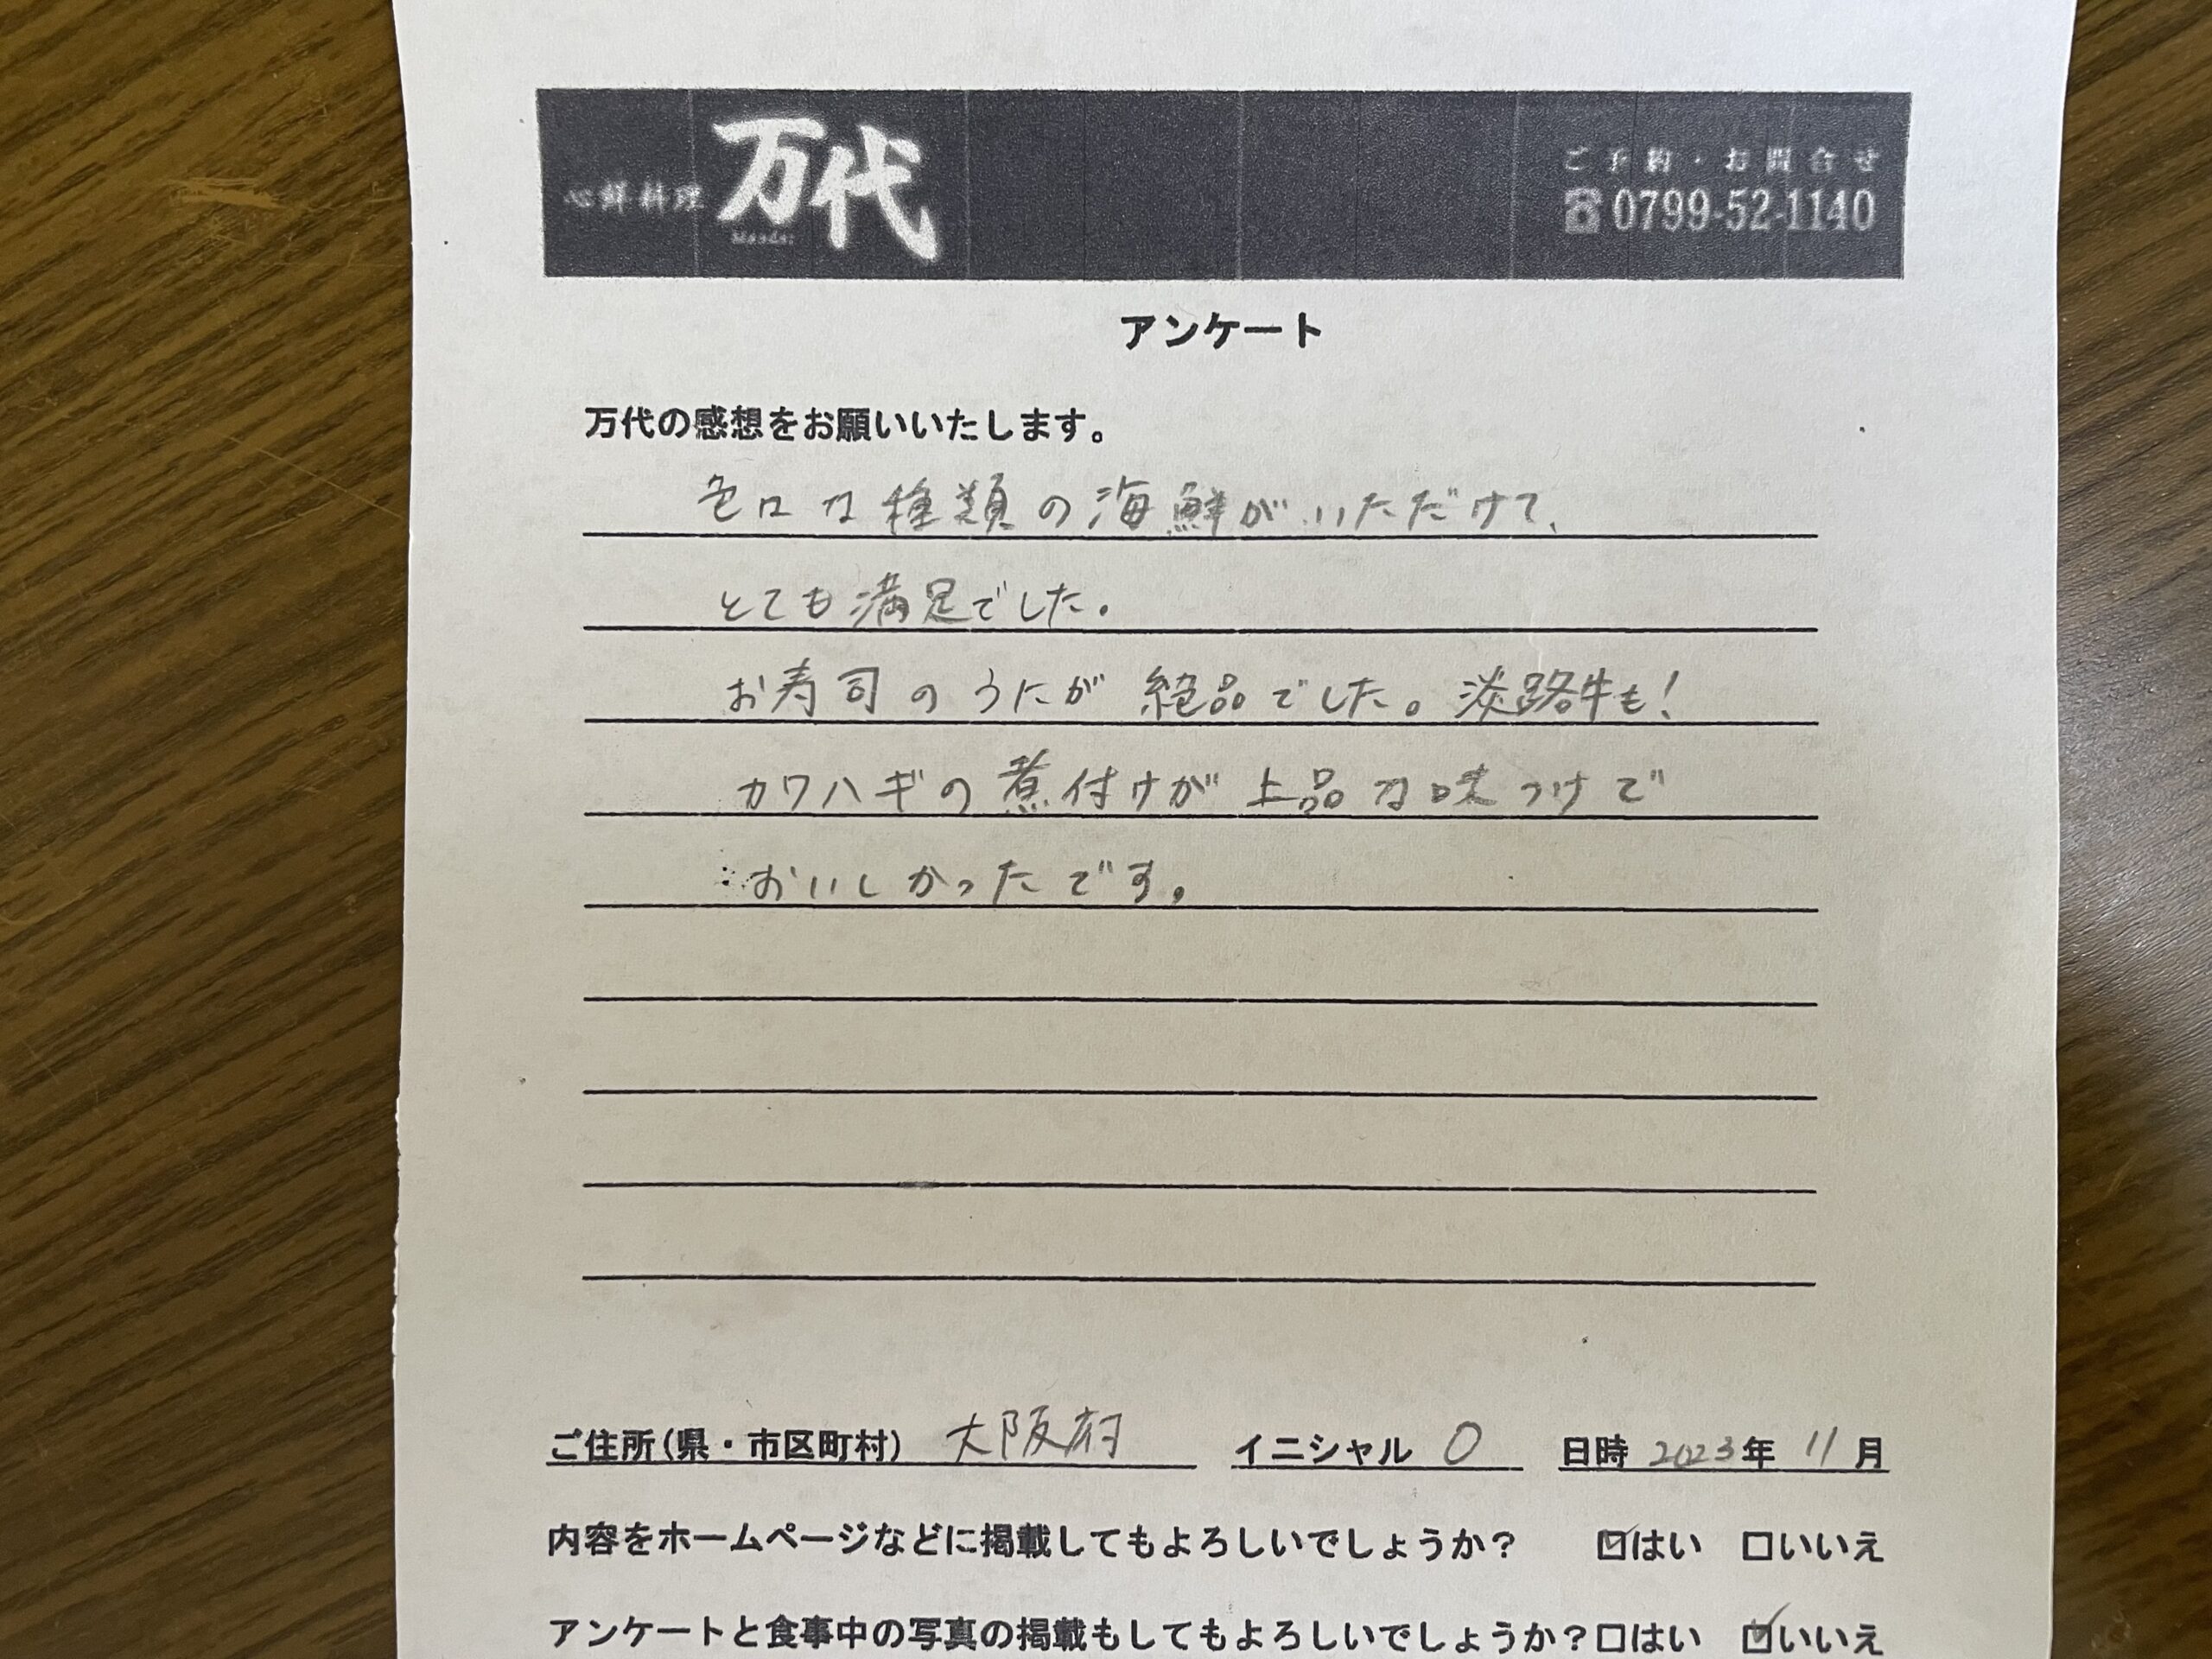 心鮮料理 万代
ご予約・お問合せ
☎0799-52-1140
アンケート
万代の感想をお願いいたします。
色口な種類の海鮮がいただけて、
とても満足でした。
お寿司のうにが絶品でした。淡路牛も!
カワハギの煮付けが上品な味つけで
おいしかったです。
ご住所(県・市区町村) 大阪府 イニシャル O 日時 2023年 11月
内容をホームページなどに掲載してもよろしいでしょうか? ☑はい □いいえ
アンケートと食事中の写真の掲載もしてもよろしいでしょうか?□はい ☑いいえ